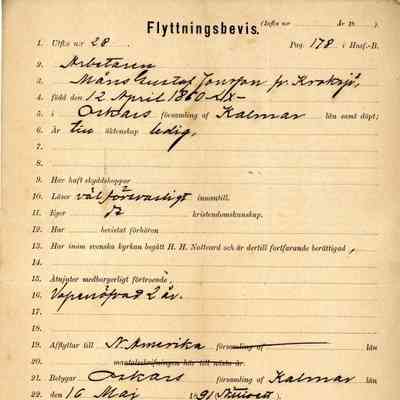 Flyttningsbevis. (Infts n:r År 18 ).
1. Utfts n:r 28. Pag. 178 i Husf.-B.
2. Arbetaren
3. Måns Gustaf Jonsson fr Kroksjö,
4. född den 12 April 1860
5. i Oskars församling af Kalmar län samt döpt;
6. Är till äktenskap ledig,
7.
8.
9. Har haft skyddskoppor
10. Läser väl försvarligt innantill.
11. Eger d:o kristendomskunskap.
12. Har bevistat förhören
13. Har inom svenska kyrkan begått H. H. Nattvard och är dertill fortfarande berättigad,
14.
15. Åtnjuter medborgerligt förtroende,
16. Vapenöfvad 2 år.
17.
18.
19. Afflyttar till N. Amerika församling af län
20. mantalsskrifningen här till nästa år.
21. Betygar Oskars församling af Kalmar län
22. den 16 Maj 1891